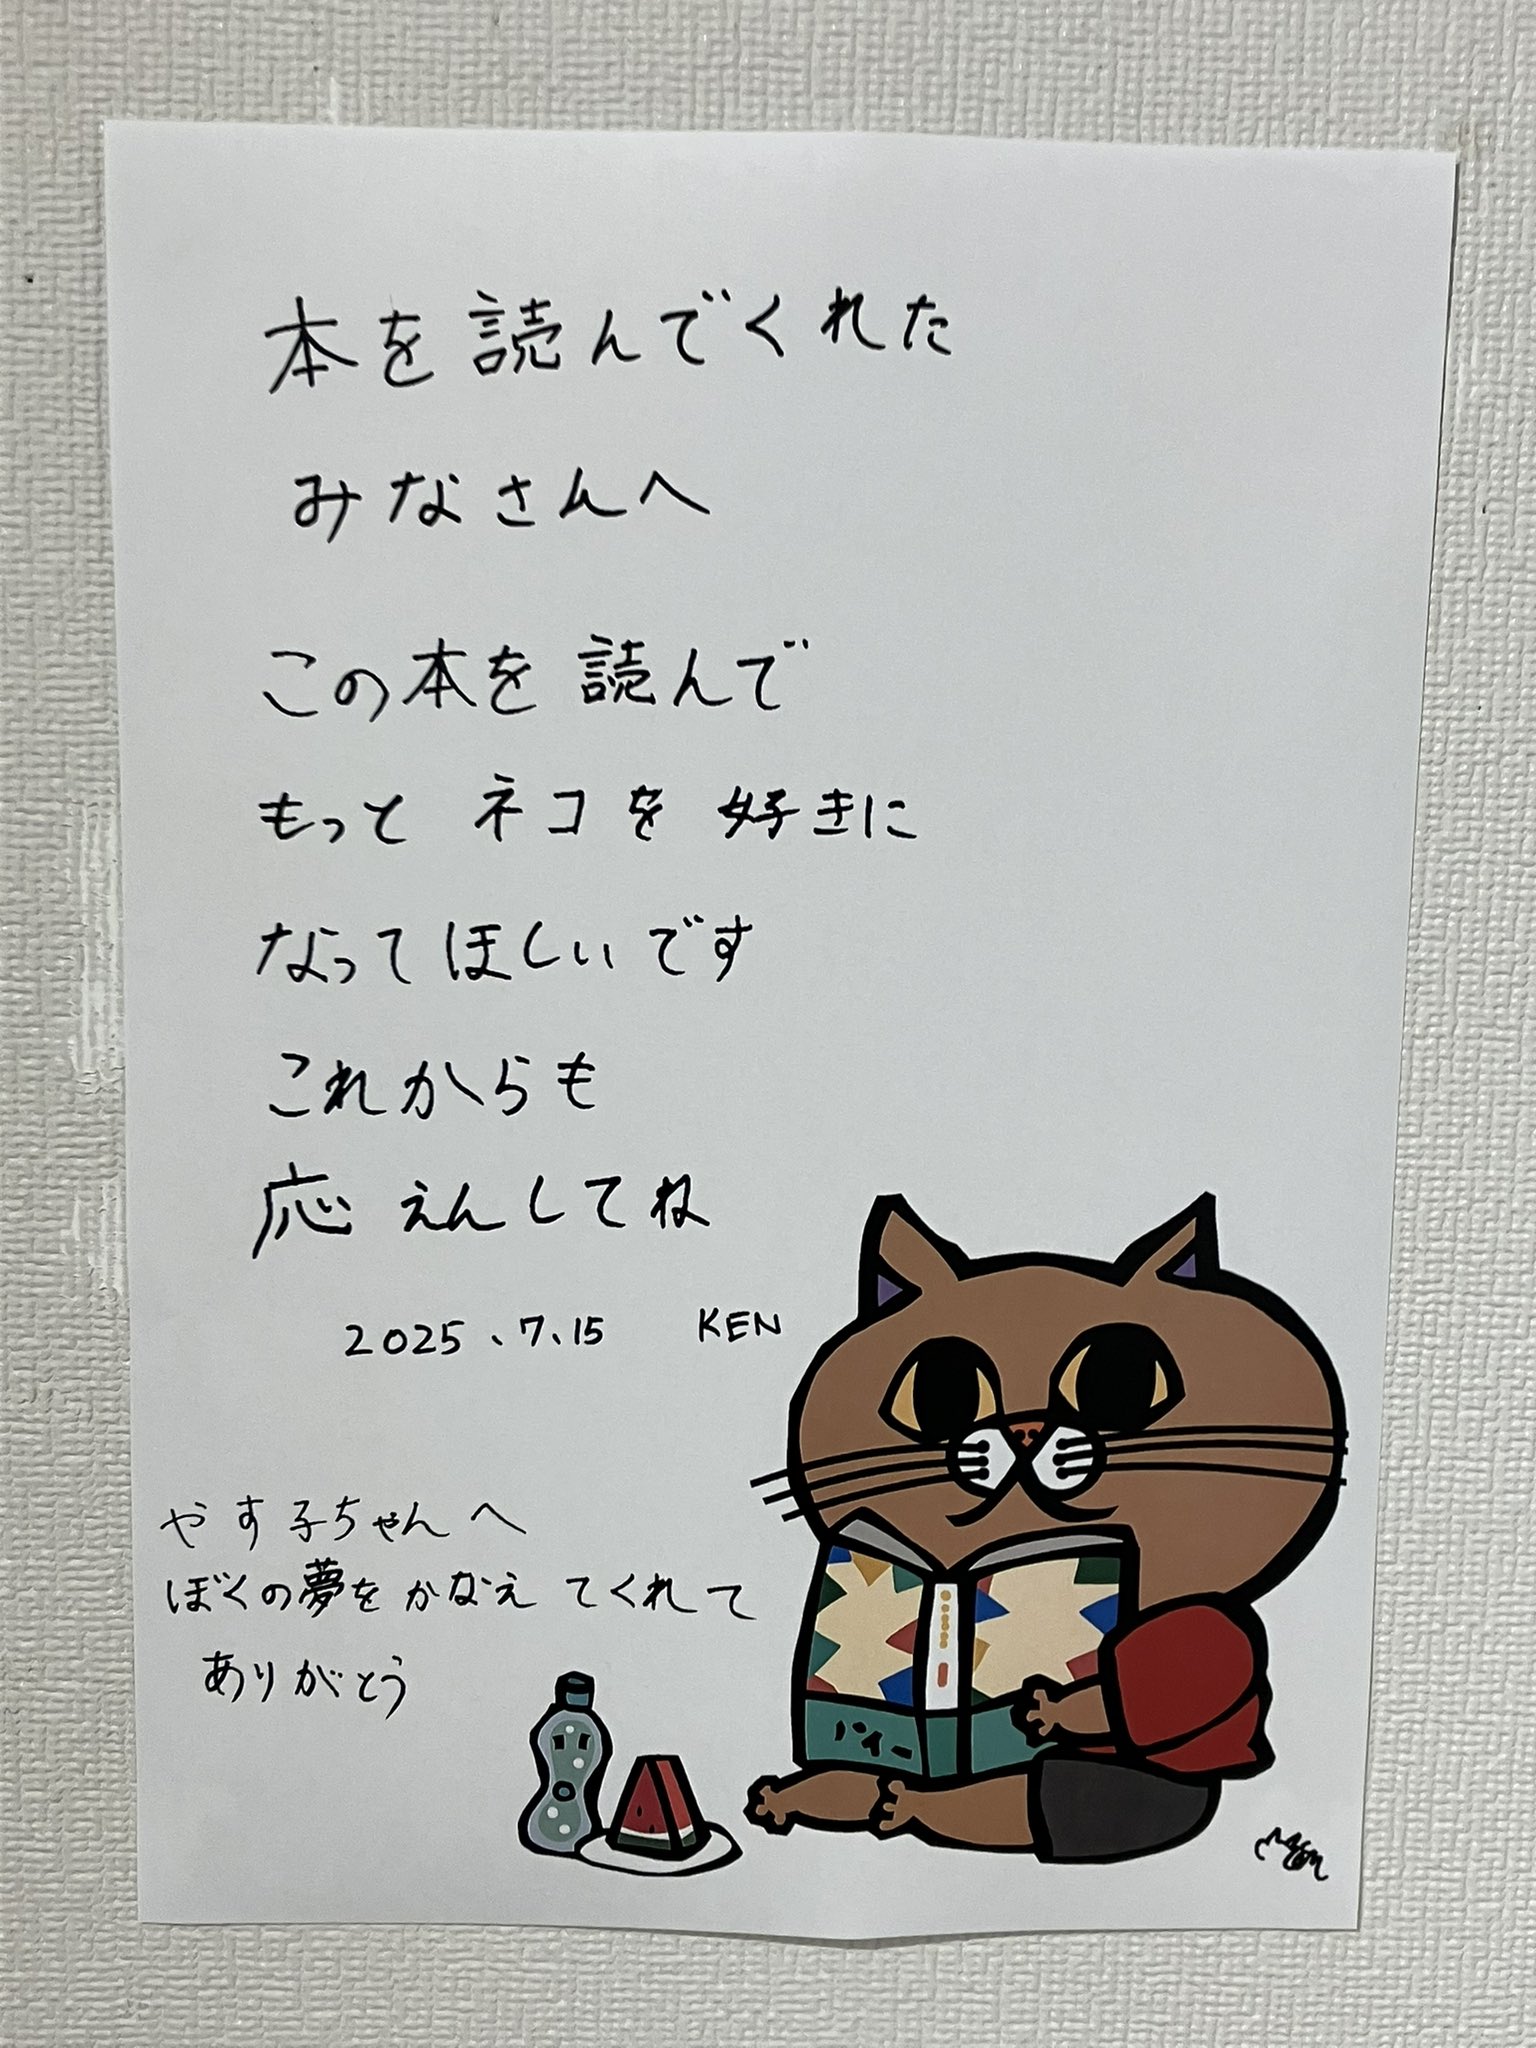 本を読んでくれた
みなさんへ
この本を読んで
もっとネコを好きに
なってほしいです
これからも
応えんしてね
2025、7、15 KEN
やす子ちゃんへ
ぼくの夢をかなえてくれて
ありがとう
パイー